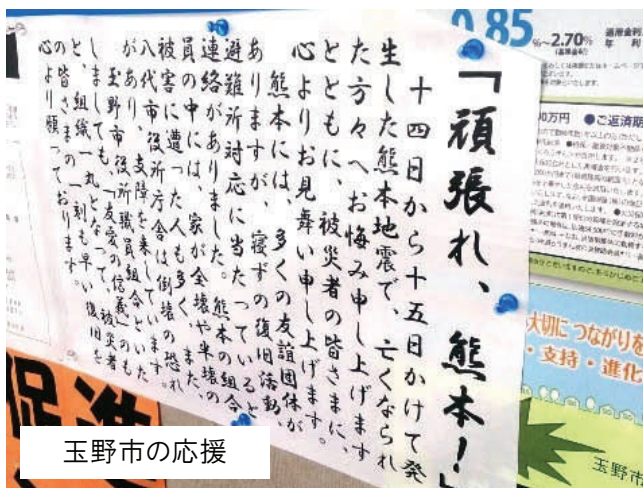 「頑張れ、熊本！」
十四日から十五日かけて発
生した熊本地震で、亡くなられ
た方々へお悔み申し上げます
とともに、被災者の皆さまに、
心よりお見舞い申し上げます。
熊本には、多くの友誼団体が
ありますが、寝ずの復旧活動、
避難所対応に当たっていると
連絡がありました。熊本の組合
員の中には、家が全壊や半壊の
被害に遭った人も多く、また、
八代市役所庁舎は倒壊の恐れ
があり、支障を来しています。
玉野市役所職員組合といた
しましても、「友愛の信義」のも
と、組織一丸となって、被災者
の皆さまの一刻も早い復旧を
心より願っております。
0.85%～2.70%
適用金利
年利
●ご返済期
大切に つながりを
・支持・進化
玉野市
促進
玉野市の応援